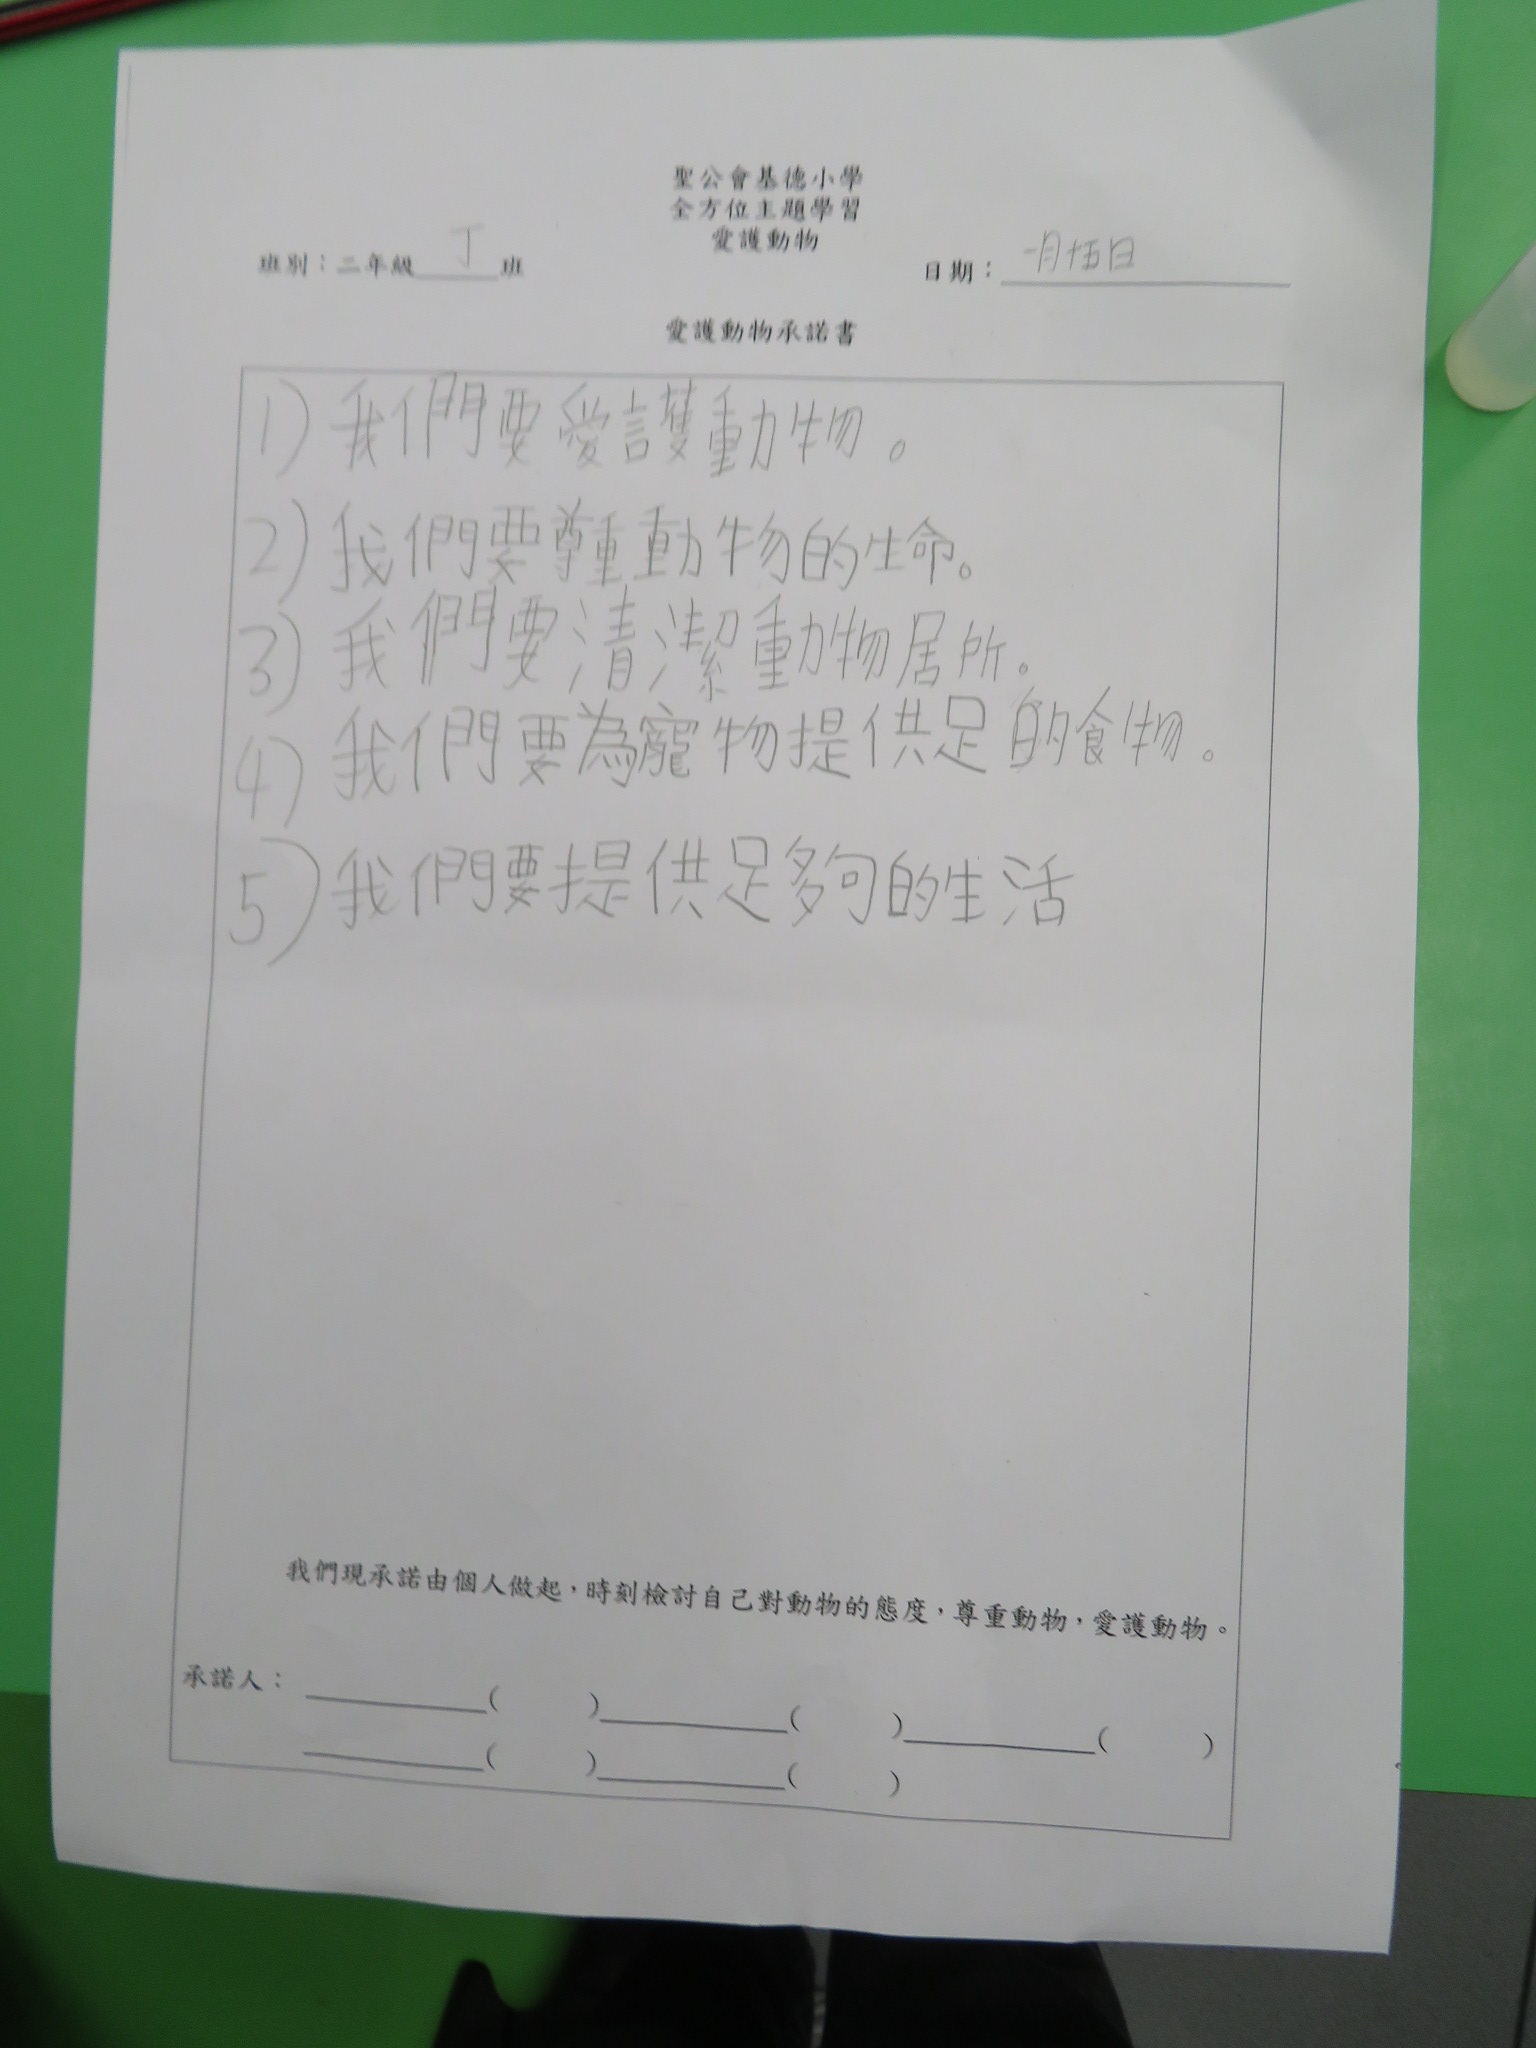 聖公會基德小學
全方位主題學習
愛護動物
班別：二年級 丁 班
日期：一月十五日
愛護動物承諾書
1) 我們要愛護動物。
2) 我們要尊重動物的生命。
3) 我們要清潔動物居所。
4) 我們要為寵物提供足的食物。
5) 我們要提供足夠的生活
我們現承諾由個人做起，時刻檢討自己對動物的態度，尊重動物，愛護動物。
承諾人： ( ) ( ) ( )
( ) ( )